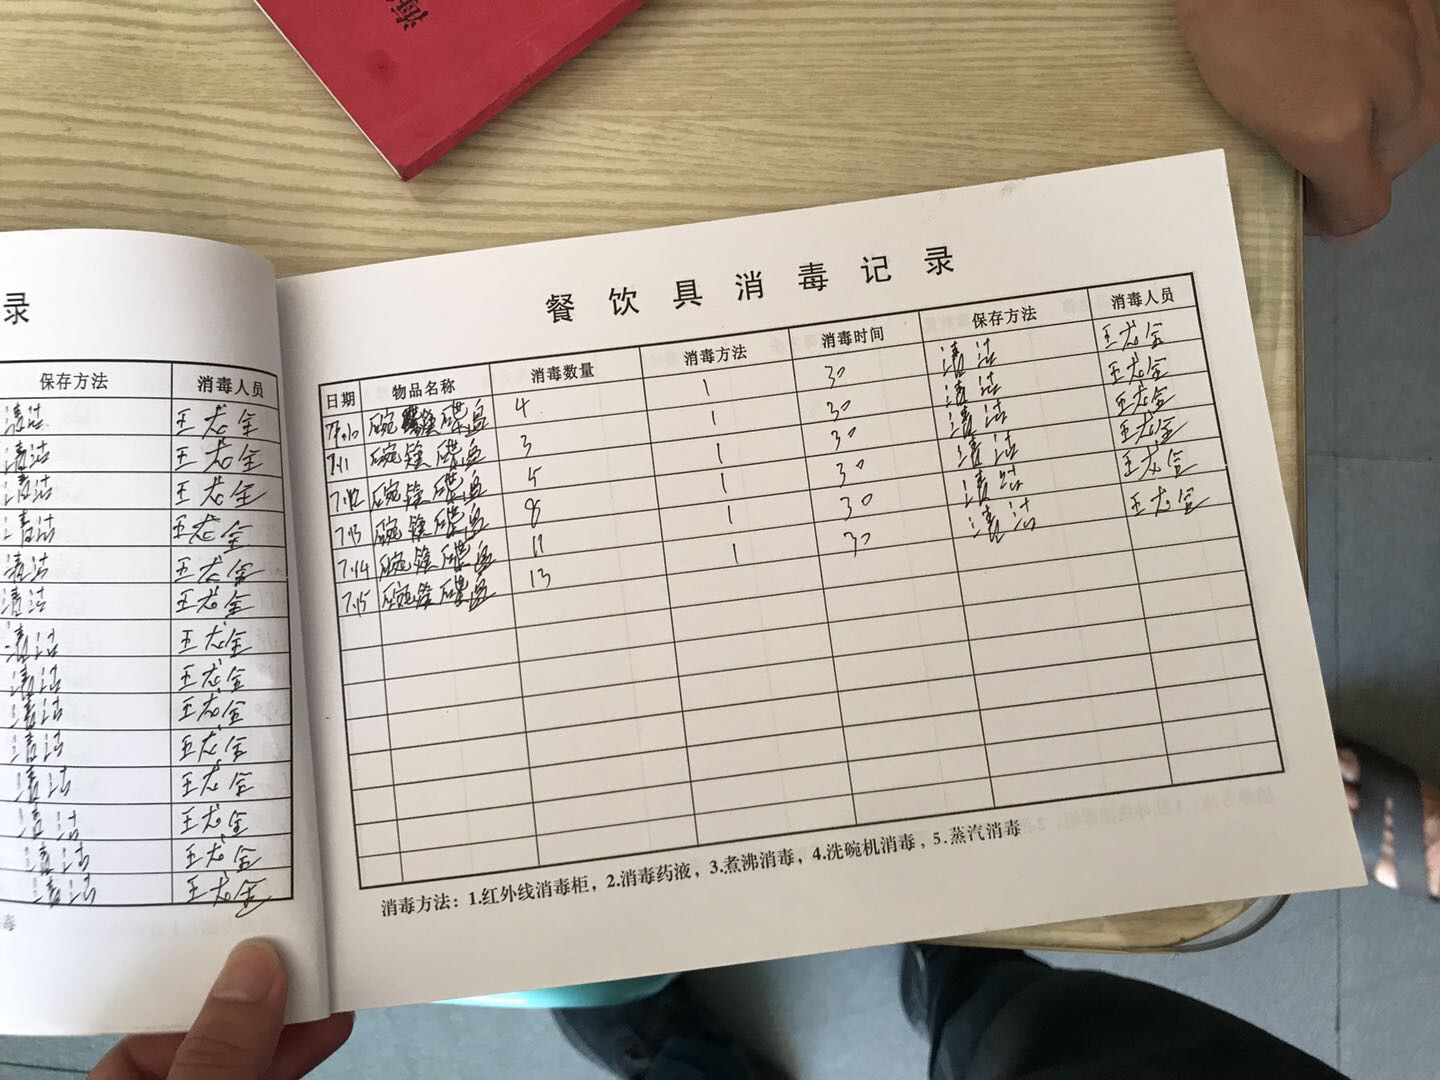 海
录
保存方法 消毒人员
清洁 王龙全
清洁 王龙全
清洁 王龙全
清洁 王龙全
清洁 王龙全
清洁 王龙全
清洁 王龙全
清洁 王龙全
清洁 王龙全
清洁 王龙全
清洁 王龙全
清洁 王龙全
清洁 王龙全
清洁 王龙全
餐饮具消毒记录
日期 物品名称 消毒数量 消毒方法 消毒时间 保存方法 消毒人员
7.10 碗 碟盘 4 1 30 清洁 王龙全
7.11 碗筷碟盘 3 1 30 清洁 王龙全
7.12 碗筷碟盘 5 1 30 清洁 王龙全
7.13 碗筷碟盘 8 1 30 清洁 王龙全
7.14 碗筷碟盘 11 1 30 清洁 王龙全
7.15 碗筷碟盘 13 1 30 清洁 王龙全
消毒方法：1.红外线消毒柜，2.消毒药液，3.煮沸消毒，4.洗碗机消毒，5.蒸汽消毒